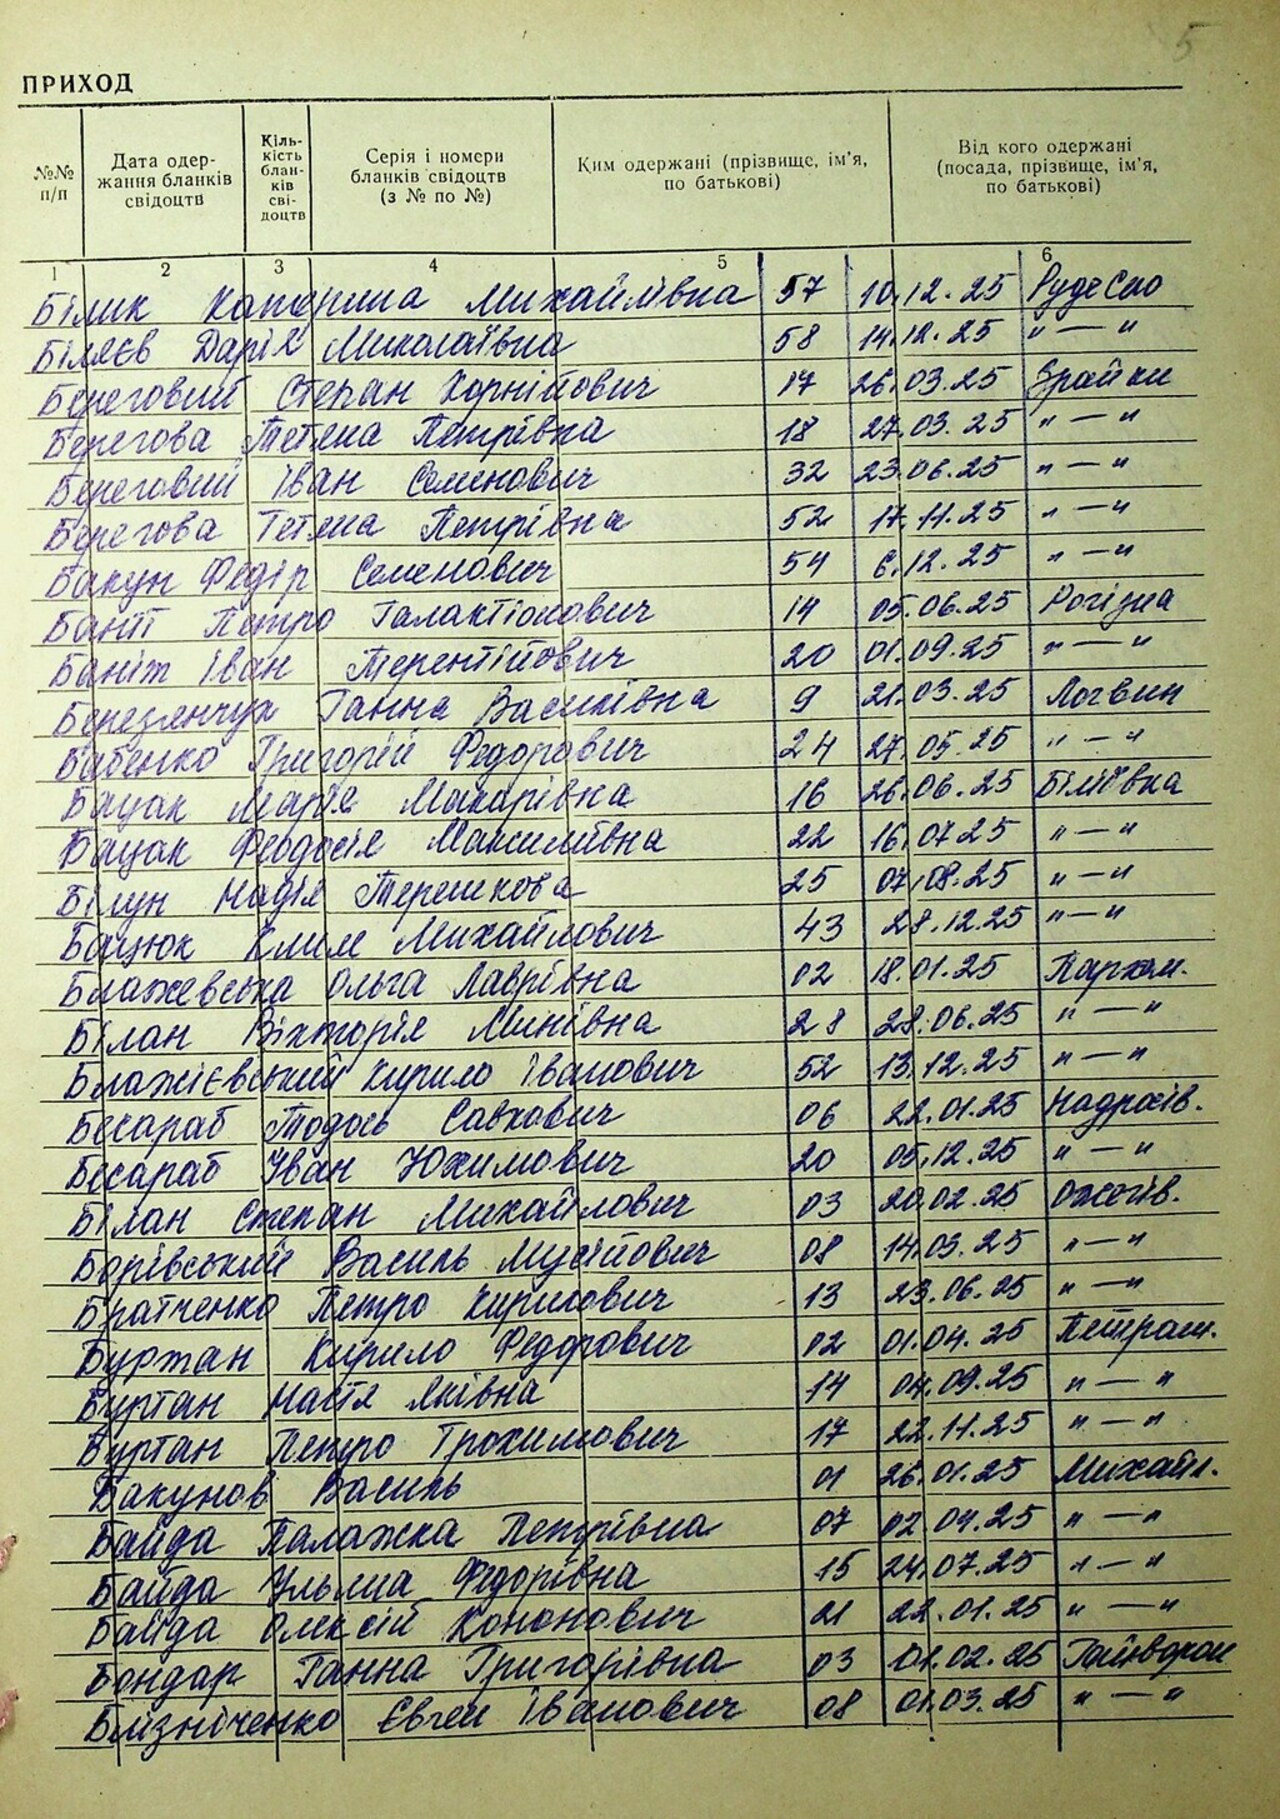 5
ПРИХОД
№№ п/п
Дата одер-
жання бланків
свідоцтв
Кіль-
кість
блан-
ків
сві-
доцтв
Серія і номери
бланків свідоцтв
(з № по №)
Ким одержані (прізвище, ім’я,
по батькові)
Від кого одержані
(посада, прізвище, ім’я,
по батькові)
1 2 3 4 5 6
Білик Катерина Михайлівна 57 10.12.25 Руде Село
Біляєв Дарія Миколаївна 58 14.12.25 " — "
Береговий Степан Корнійович 17 26.03.25
Берегова Тетяна Петрівна 18 27.03.25 " — "
Береговий Іван Семенович 32 23.06.25 " — "
Берегова Тетяна Петрівна 52 17.11.25 " — "
Бакун Федір Семенович 54 6.12.25 " — "
Петро Галактіонович 14 05.06.25 Рогізна
Баніж Іван Терентійович 20 01.09.25 " — "
Березянчук Ганна Василівна 9 21.03.25 Логвин
Бабенко Григорій Федорович 24 27.05.25 " — "
Бацак Марія Макарівна 16 26.06.25 Біліївка
Бацак Феодосія Максимівна 22 16.07.25 " — "
Білун Надія Терешкова 25 07.08.25 " — "
Бацюк Клим Михайлович 43 28.12.25 " — "
Блажевська Ольга Лаврівна 02 18.01.25 Пархом.
Білан Вікторія Минівна 28 28.06.25 " — "
Блажієвський Кирило Іванович 52 13.12.25 " — "
Бесараб Тодось Савкович 06 22.01.25 Надросів.
Бесараб Іван Юхимович 20 05.12.25 " — "
Білан Степан Михайлович 03 20.02.25 Ожегів.
Борівський Василь Мусійович 08 14.03.25 " — "
Братченко Петро Кирилович 13 23.06.25 " — "
Буртан Кирило Федорович 02 01.04.25 Петраш.
Буртан Настя Яківна 14 04.09.25 " — "
Буртан Петро Трохимович 17 22.11.25 " — "
Бакунов Василь 01 26.01.25 Михайл.
Байда Палажка Петрівна 07 02.04.25 " — "
Байда Ульяна Федорівна 15 24.07.25 " — "
Байда Олексій Кононович 21 22.01.25 " — "
Бондар Ганна Григорівна 03 01.02.25 Гайворон
Близніченко Євген Іванович 08 01.03.25 " — "